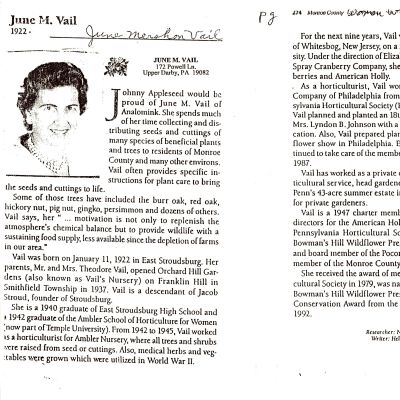 June M. Vail
1922 -
June Mershon Vail
JUNE M. VAIL
172 Powell Ln.
Upper Darby, PA 19082
Johnny Appleseed would be
proud of June M. Vail of
Analomink. She spends much
of her time collecting and dis-
tributing seeds and cuttings of
many species of beneficial plants
and trees to residents of Monroe
County and many other environs.
Vail often provides specific in-
structions for plant care to bring
the seeds and cuttings to life.
Some of those trees have included the burr oak, red oak,
hickory nut, pig nut, gingko, persimmon and dozens of others.
Vail says, her " ... motivation is not only to replenish the
atmosphere's chemical balance but to provide wildlife with a
sustaining food supply, less available since the depletion of farms
in our area."
Vail was born on January 11, 1922 in East Stroudsburg. Her
parents, Mr. and Mrs. Theodore Vail, opened Orchard Hill Gar-
dens (also known as Vail's Nursery) on Franklin Hill in
Smithfield Township in 1937. Vail is a descendant of Jacob
Stroud, founder of Stroudsburg.
She is a 1940 graduate of East Stroudsburg High School and
a 1942 graduate of the Ambler School of Horticulture for Women
(now part of Temple University). From 1942 to 1945, Vail worked
as a horticulturist for Ambler Nursery, where all trees and shrubs
were raised from seed or cuttings. Also, medical herbs and veg-
etables were grown which were utilized in World War II.
Pg 474 Monroe County
For the next nine years, Vail
of Whitesbog, New Jersey, on a
sity. Under the direction of Eliza
Spray Cranberry Company, she
berries and American Holly.
As a horticulturist, Vail work
Company of Philadelphia from
sylvania Horticultural Society (
Vail planned and planted an 18t
Mrs. Lyndon B. Johnson with a
cation. Also, Vail prepared plan
flower show in Philadelphia. E
tinued to take care of the membe
1987.
Vail has worked as a private c
ticultural service, head gardene
Penn's 43-acre summer estate i
for private gardeners.
Vail is a 1947 charter memb
directors for the American Hol
Pennsylvania Horticultural S
Bowman's Hill Wildflower Pre
and board member of the Pocon
member of the Monroe County
She received the award of me
cultural Society in 1979, was na
Bowman's Hill Wildflower Pres
Conservation Award from the
1992.
Researcher: N
Writer: Hel